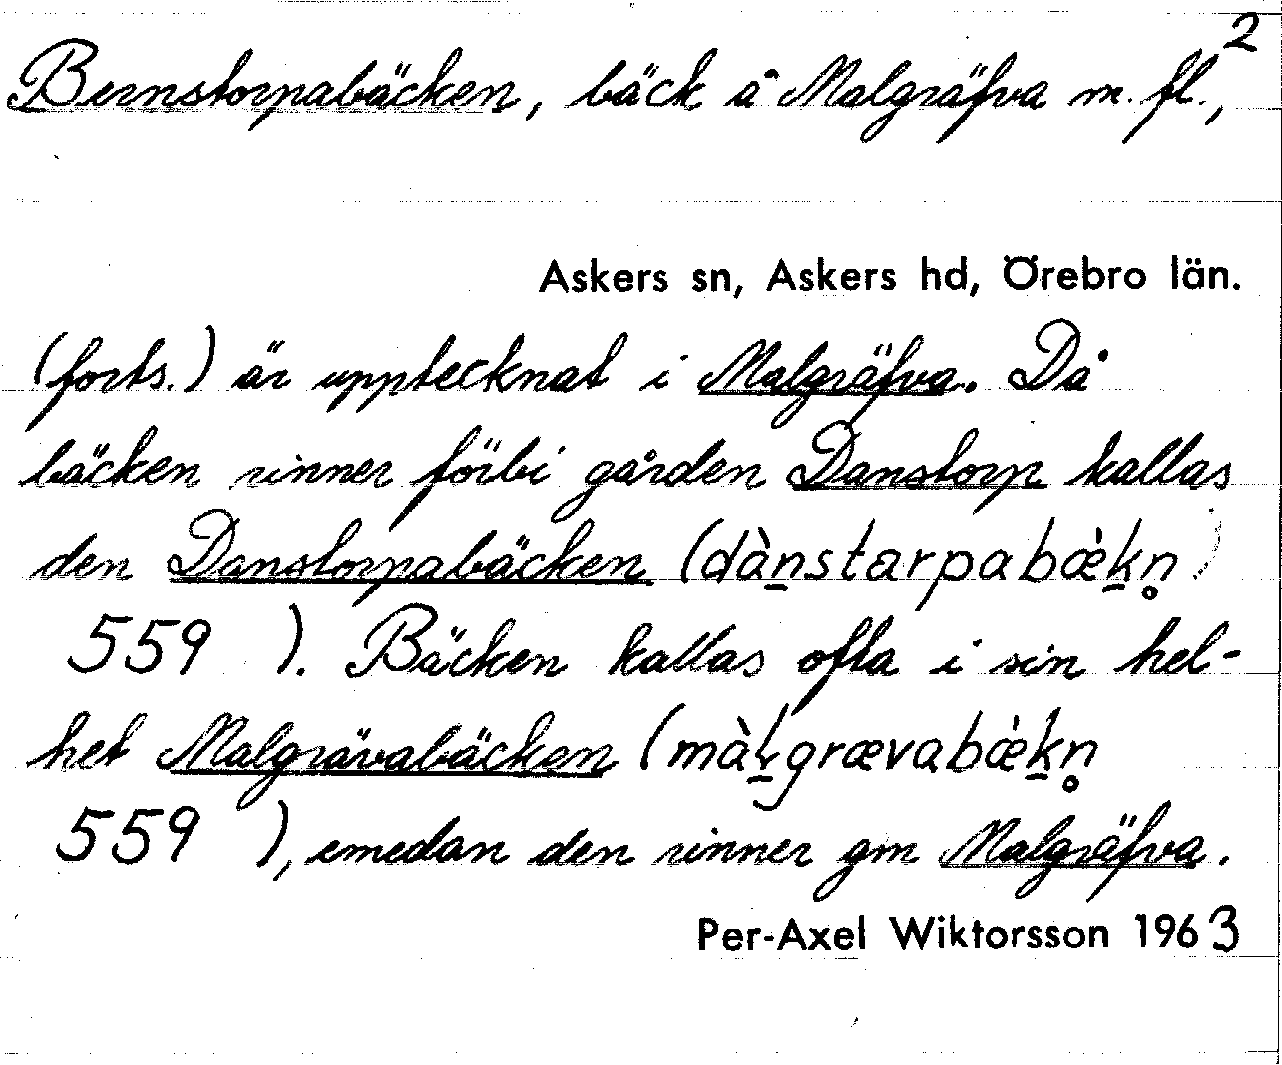 2
Bernstorpabäcken, bäck å Malgräfva m. fl.,
Askers sn, Askers hd, Örebro län.
(forts.) är upptecknat i Malgräfva. Då
bäcken rinner förbi gården Danstorp kallas
den Danstorpabäcken (dàn̠starpabæ̀k̠n̥
559 ). Bäcken kallas ofta i sin hel-
het Malgrävabäcken (màḷgrævabæ̀k̠n̥
559 ), emedan den rinner gm Malgräfva.
Per-Axel Wiktorsson 1963